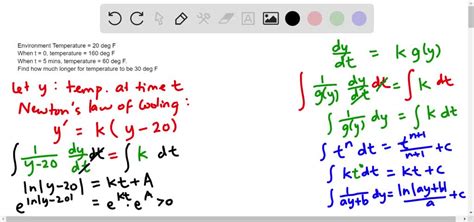 Environment Temperature = 20 deg F
When t = 0, temperature = 160 deg F
When t = 5 mins, temperature = 60 deg F
Find how much longer for temperature to be 30 deg F
Let y : temp. at time t
Newton's law of cooling :
y' = k ( y - 20 )
∫ 1/(y-20) dy/dt dt = ∫ k dt
ln|y-20| = kt + A
e^(ln|y-20|) = e^(kt) · e^A > 0
dy/dt = k g(y)
∫ 1/g(y) dy/dt dt = ∫ k dt
∫ 1/g(y) dy = ∫ k dt
∫ t^n dt = t^(n+1)/(n+1) + c
∫ k t° dt = kt + c
∫ 1/(ay+b) dy = ln|ay+b|/a + c